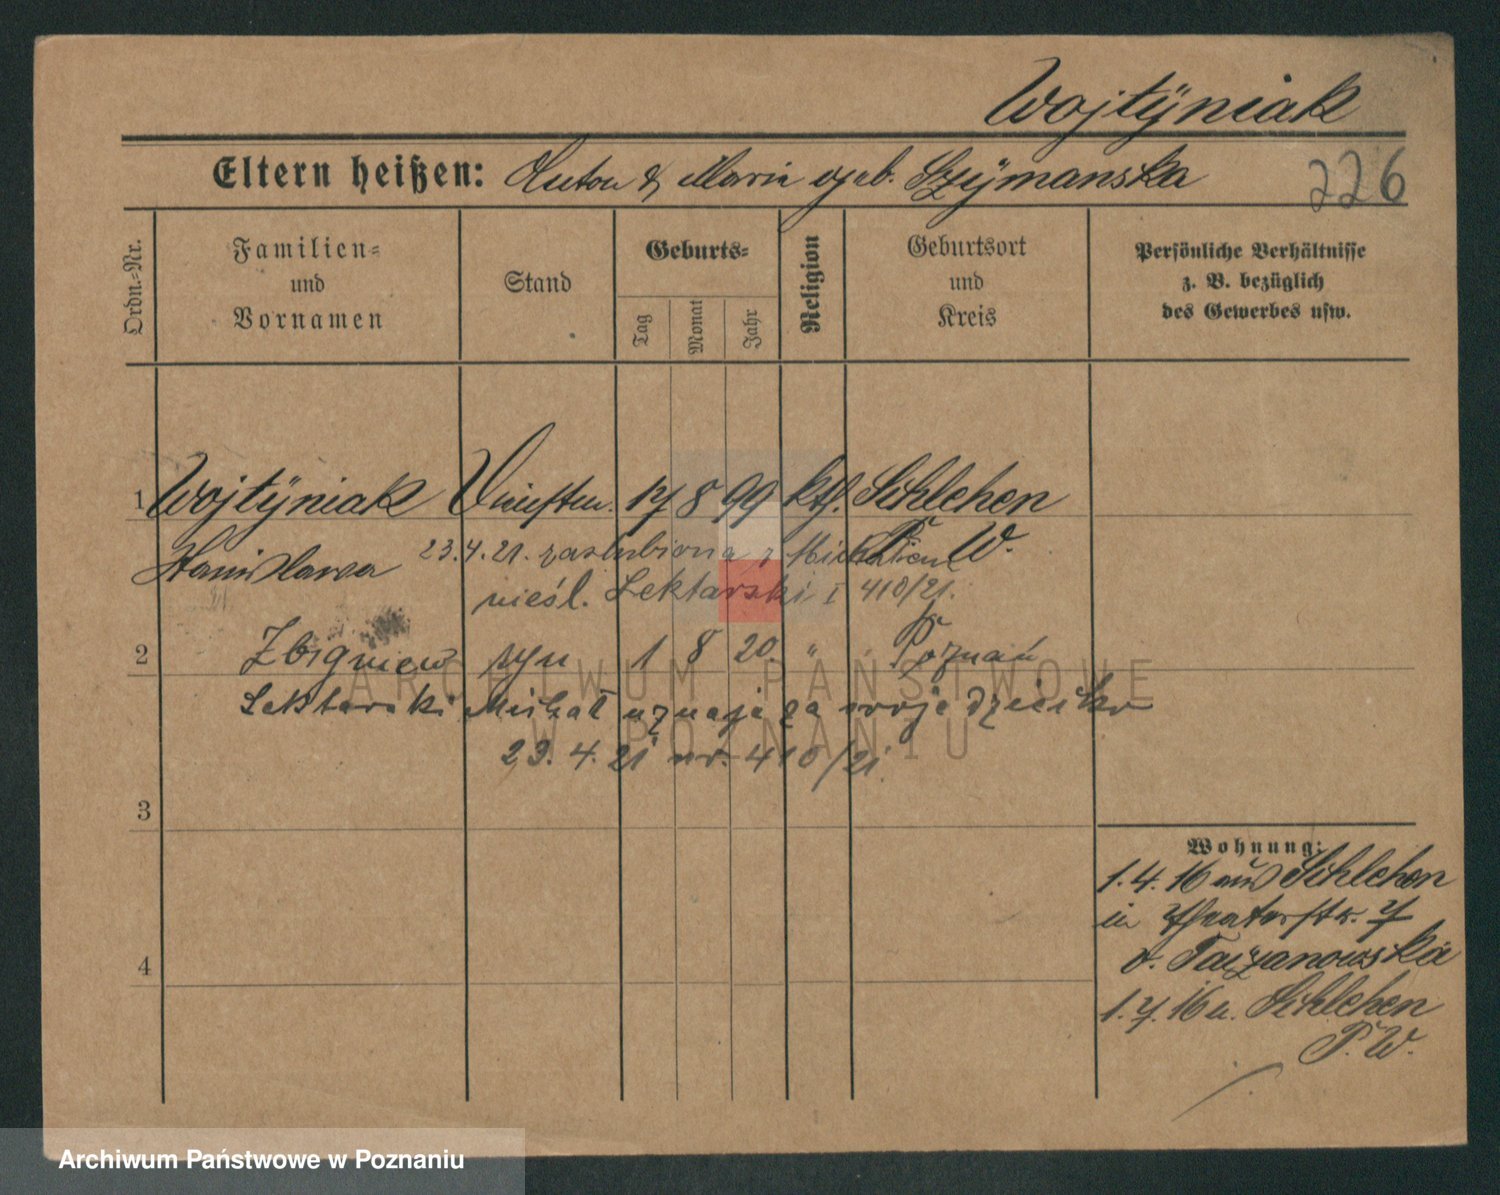 Wojtÿniak
Eltern heißen: Anton & Maria geb. Szÿmanska
226
Ordn.-Nr.
Familien-
und
Vornamen
Stand
Geburts-
Tag
Monat
Jahr
Religion
Geburtsort
und
Kreis
Persönliche Verhältnisse
z. B. bezüglich
des Gewerbes usw.
1 Wojtÿniak 17 8 99 ktf. Schlehen
P. W.
Stanislawa 23.4.21. zaslubiona z Michałem
nieśl. Lektarski I 410/21.
2 Zbigniew syn 1 8 20 " Poznań
Lektarski Michał uznaje za swoje dziecko
23.4.21 nr. 410/21
3
4
Wohnung:
1.4.16 aus Schlehen
in Theaterstr. 7
b. Taczanowska
1.7.16 n. Schlehen
P. W.
ARCHIWUM PAŃSTWOWE
W POZNANIU
Archiwum Państwowe w Poznaniu